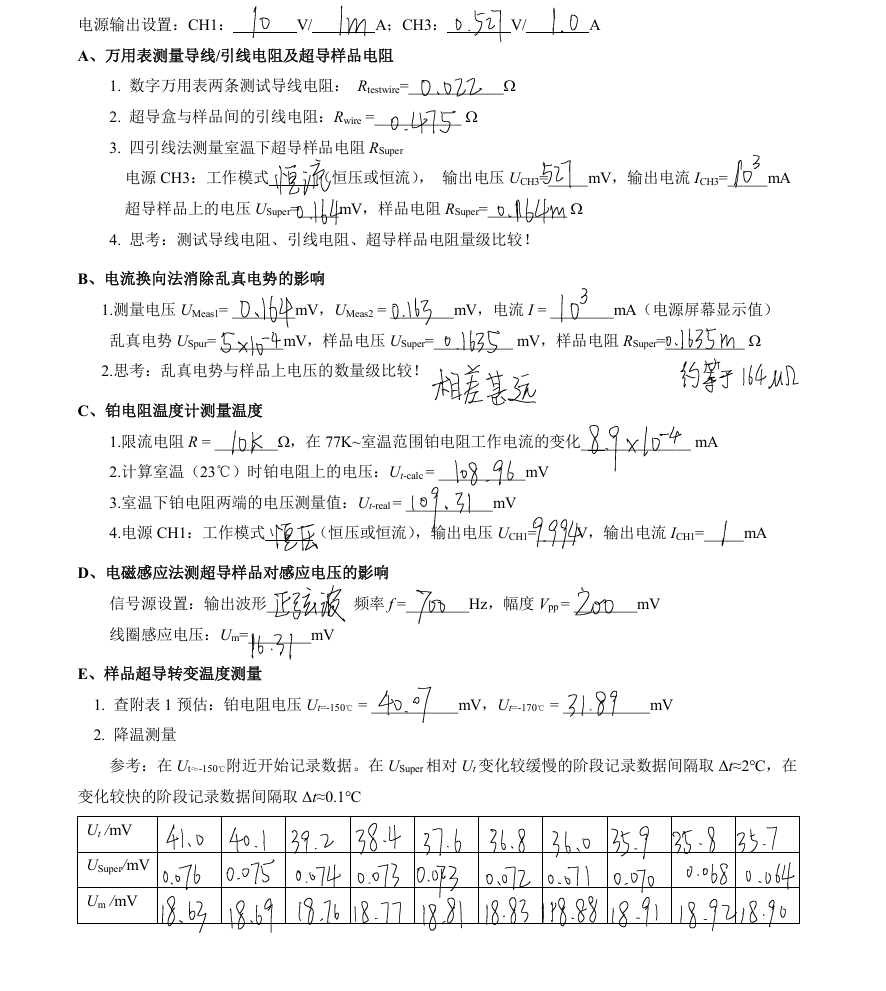 电源输出设置：CH1：10V/1mA；CH3：0.527V/1.0A
A、万用表测量导线/引线电阻及超导样品电阻
1. 数字万用表两条测试导线电阻： Rtestwire=0.022Ω
2. 超导盒与样品间的引线电阻：Rwire =0.475 Ω
3. 四引线法测量室温下超导样品电阻 RSuper
电源 CH3：工作模式恒流（恒压或恒流）， 输出电压 UCH3=527mV，输出电流 ICH3=10³mA
超导样品上的电压 USuper=0.164mV，样品电阻 RSuper=0.164m Ω
4. 思考：测试导线电阻、引线电阻、超导样品电阻量级比较！
B、电流换向法消除乱真电势的影响
1.测量电压 UMeas1= 0.164mV，UMeas2 =0.163mV，电流 I =10³mA（电源屏幕显示值）
乱真电势 USpur=5×10⁻⁴mV，样品电压 USuper=0.1635 mV，样品电阻 RSuper=0.1635m Ω
2.思考：乱真电势与样品上电压的数量级比较！ 相差甚远 约等于164μΩ
C、铂电阻温度计测量温度
1.限流电阻 R =10KΩ，在 77K~室温范围铂电阻工作电流的变化8.9×10⁻⁴ mA
2.计算室温（23℃）时铂电阻上的电压：Ut-calc=108.96mV
3.室温下铂电阻两端的电压测量值：Ut-real=109.31mV
4.电源 CH1：工作模式恒压（恒压或恒流），输出电压 UCH1=9.994V，输出电流 ICH1=1mA
D、电磁感应法测超导样品对感应电压的影响
信号源设置：输出波形正弦波 频率 f =700Hz，幅度 Vpp =200mV
线圈感应电压：Um=16.31mV
E、样品超导转变温度测量
1. 查附表 1 预估：铂电阻电压 Ut=-150℃ =40.07mV，Ut=-170℃ =31.89mV
2. 降温测量
参考：在 Ut≈-150℃附近开始记录数据。在 USuper 相对 Ut 变化较缓慢的阶段记录数据间隔取 Δt≈2℃，在
变化较快的阶段记录数据间隔取 Δt≈0.1℃
Ut /mV 41.0 40.1 39.2 38.4 37.6 36.8 36.0 35.9 35.8 35.7
USuper/mV 0.076 0.075 0.074 0.073 0.073 0.072 0.071 0.070 0.068 0.064
Um /mV 18.63 18.69 18.76 18.77 18.81 18.83 18.88 18.91 18.92 18.90